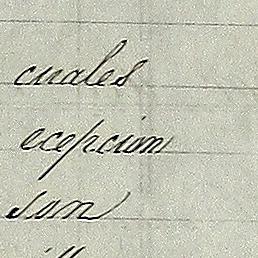 cuales
ecepcion
son